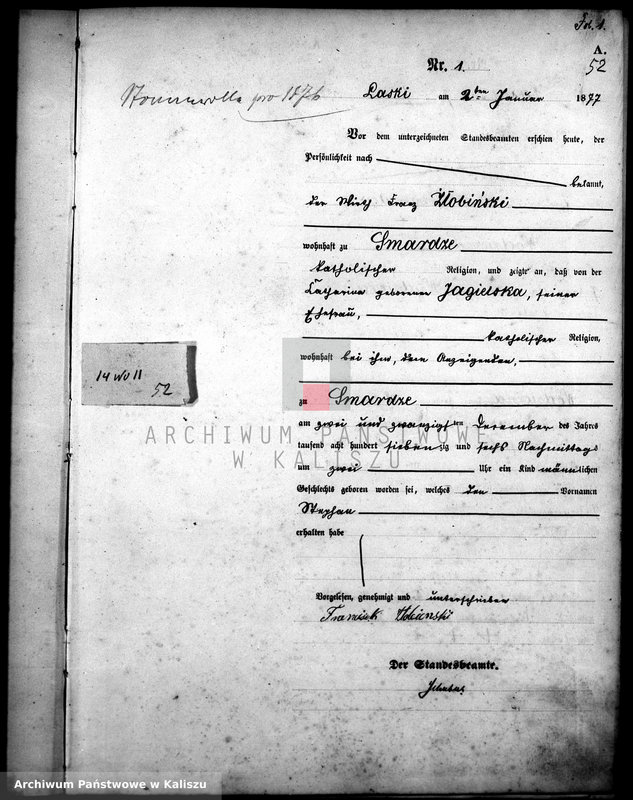 Fol. 1.
A.
52
Nr. 1.
Laski am 2ten Januar 1877
pro 1876
Vor dem unterzeichneten Standesbeamten erschien heute, der
Persönlichkeit nach
bekannt,
der Wirth Franz Złobiński
wohnhaft zu Smardze
katholischer Religion, und zeigte an, daß von der
Catharina geborener Jagielska, seiner
Ehefrau,
katholischer Religion,
wohnhaft bei ihm, dem Anzeigenden,
zu Smardze
am zwei und zwanzigsten Dezember des Jahres
tausend acht hundert siebenzig und sechs Nachmittags
um zwei Uhr ein Kind männlichen
Geschlechts geboren worden sei, welches den Vornamen
Stephan
erhalten habe
Vorgelesen, genehmigt und unterschrieben
Der Standesbeamte.
14 WU II
52
ARCHIWUM PAŃSTWOWE
W KALISZU
Archiwum Państwowe w Kaliszu